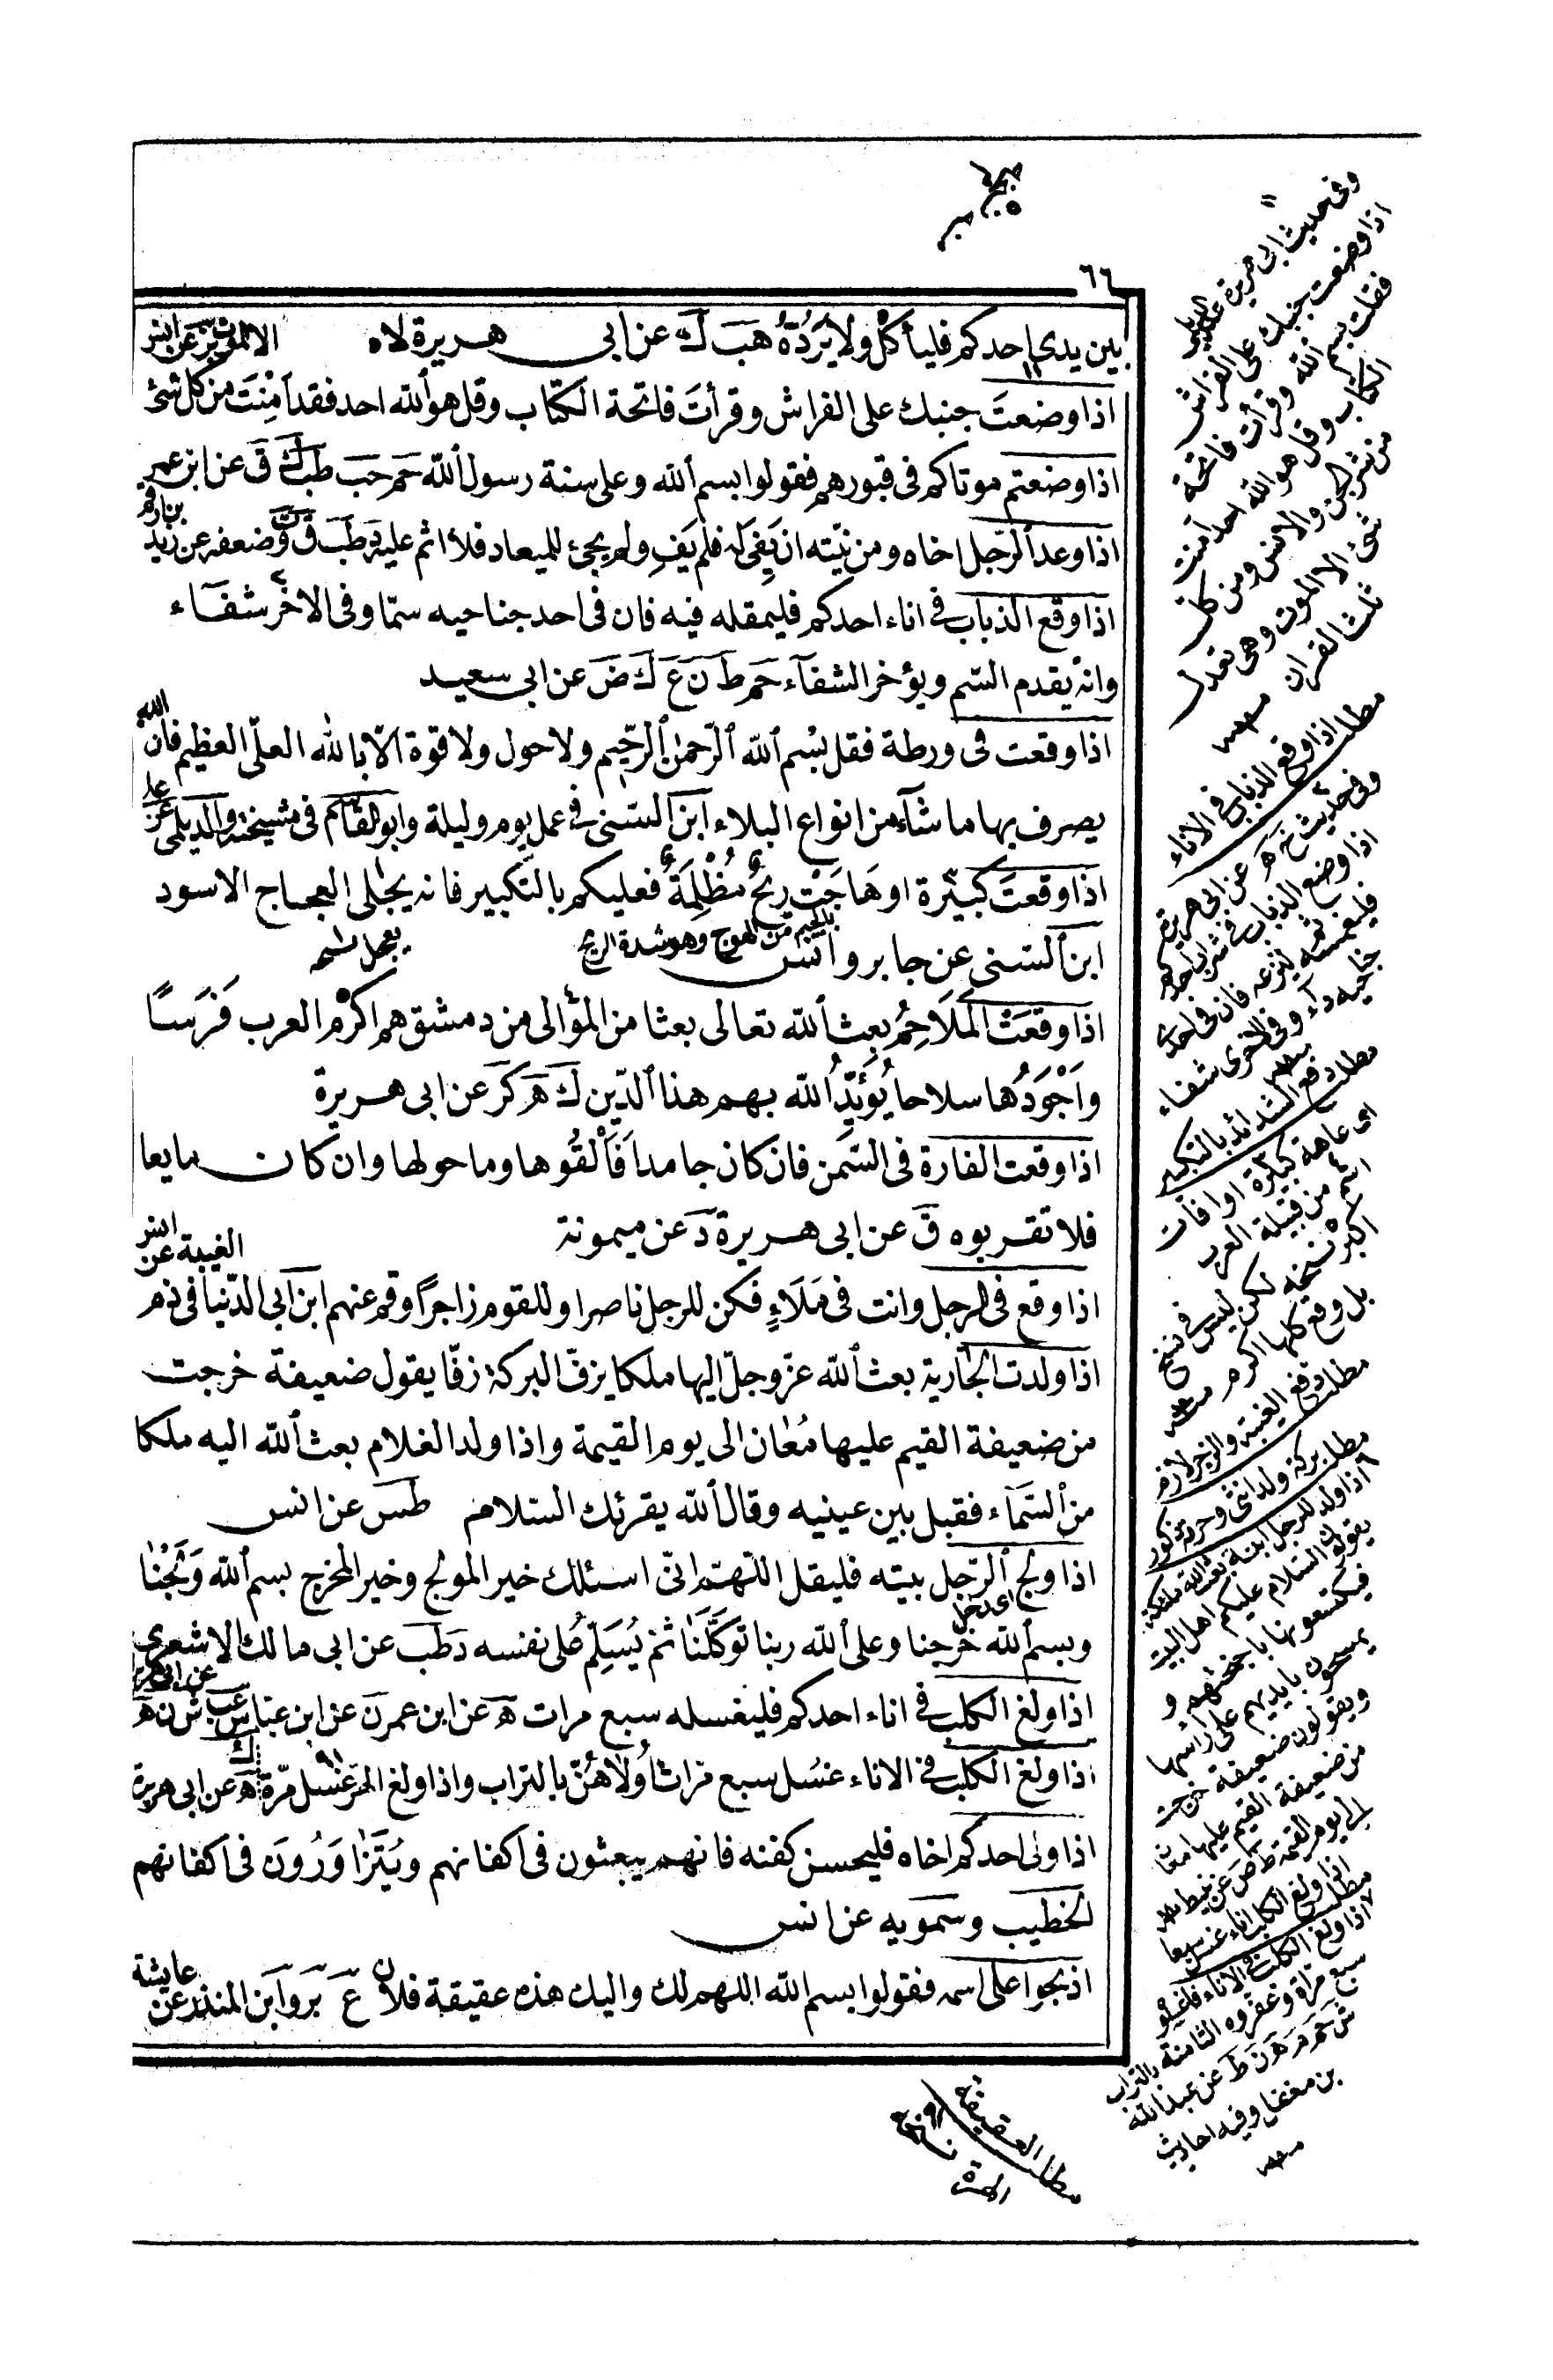 ٦٦
بين يدى احدكم فليأكل ولا يَرُدَّهُ هَبَ كَ عن ابى هريرة لاه
الا الموت بز عن انس
اذا وضعتَ جنبك على الفراش وقرأتَ فاتحة الكتاب وقل هو الله احد فقد اَمِنْتَ من كل شئ
اذا وضعتم موتاكم فى قبورهم فقولوا بسم الله وعلى سنة رسول الله حَم حَبَ طَبَ كَ قَ عن ابن عمر
اذا وعد الرّجل اخاه ومن نيّته ان يَفِىَ له فلم يَفِ ولم يجئ للميعاد فلا اثم عليه دَ طَبَ قَ تَ وضعفه عن زيد بن ارقم
اذا وقع الذباب فى اناء احدكم فليمقله فيه فان فى احد جناحيه سمّا وفى الاخر شفاء
وانه يقدم السّم ويؤخر الشفآء حَم طَ نَ عَ كَ ضَ عن ابى سعيد
اذا وقعت فى ورطة فقل بسْم الله الرّحمن الرحيم ولا حول ولا قوة الاّ بالله العلّى العظيم فان الله
يصرف بها ما شآء من انواع البلاء ابن السّنى فى عمل يوم وليلة وابو القاسم فى مشيخته والديلمى عن على
اذا وقعتَ كبيرة او هَاجَتْ ريحٌ مُظْلِمَةٌ فعليكم بالتكبير فانه يجلى العجاج الاسود
ابن السّنى عن جابر وانس
بالجيم من الهوج وهو شدة الريح
اذا وقعَتْ المَلَاحِمُ بعث الله تعالى بعثا من المؤالى من دمشق هم اكرم العرب فَرَسًا
واَجْوَدُها سلاحا يُؤَيّدُ الله بهم هذا الدّين كَ هَ كَرَ عن ابى هريرة
اذا وقعت الفارة فى السّمن فان كان جامداً فَاَلْقُوها وما حولها وان كان مايعا
فلا تقربوه قَ عن ابى هريرة دَ عن ميمونة
الغيبة عن انس
اذا وقع فى الرجل وانت فى مَلَاءٍ فكن للرجل ناصرا وللقوم زاجرًا وقم عنهم ابن ابى الدّنيا فى ذم
اذا ولدت الجارية بعث الله عزّ وجلّ اليها ملكا يزفّ البركة زفّا يقول ضعيفة خرجت
من ضعيفة القيم عليها مُعَان الى يوم القيمة واذا ولد الغلام بعث الله اليه ملكا
من السّمآء فقبل بين عينيه وقال الله يقرئك السّلام طَسَ عن انس
اذا ولج الرّجل بيته فليقل اللّهم انّى اسئلك خير المولج وخير المخرج بسم الله وَلَجْنَا
اى دخل
وبسم الله خرجنا وعلى الله ربنا توكّلنا ثم يُسَلِّمُ على نفسه دَ طَبَ عن ابى مالك الاشعرى
اذا ولغ الكلب فى اناء احدكم فليغسله سبع مرات هَ عن ابن عمر نَ عن ابن عباس
اذا ولغ الكلب فى الاناء غسل سبع مرات اُولاهُنّ بالتراب واذا ولغ الهرّ غسل مرّة كَ عن ابى هريرة
اذا ولى احدكم اخاه فليحسن كفنه فانهم يبعثون فى اكفانهم ويَتَزَاوَرُونَ فى اكفانهم
الخطيب وسمويه عن انس
اذبحوا على اسمه فقولوا بسم الله اللهم لك واليك هذه عقيقة فلان عَ بَر وابن المنذر عن عايشة
وفى حديث ابى هريرة
اذا وضعت جنبك على الفراش
فقلت بسم الله وقرأت فاتحة
الكتاب وقل هو الله احد امنت
من شر الجن والانس ومن كل
شئ الا الموت وهى تعدل
ثلث القران
مطلب اذا وقع الذباب فى الاناء
وفى حديث خ هَ عن ابى هريرة
اذا وقع الذباب فى شراب احدكم
فليغمسه ثم لينزعه فان فى احد
جناحيه دآء وفى الاخرى شفاء
مطلب دفع الشدائد بالتكبير
اى عاهة كبيرة او افات
اسم من قبيلة العرب
اكبر نسخه لكن ليس فى نسخ
بل وقع كلها اكرم
مطلب دفع الغيبة والزجر لازم
مطلب بركة ولد انثى وحرمة ذكور
اذا ولد للرجل ابنة بعث الله ملئكة
يقولون السلام عليكم اهل البيت
فيكتسعونها باجنحتهم و
يمسحون بايديهم على راسها
ويقولون ضعيفة خرجت
من ضعيفة القيم عليها معان
الى يوم القيمة
مطلب اذا ولغ الكلب اناء غسل سبعا
اذا ولغ الكلب فى الاناء فاغسلوه
سبع مرات وعفروه الثامنة بالتراب
ش حَم مَ دَ هَ نَ طَ عن عبد الله
بن مغفل وفيه احاديث